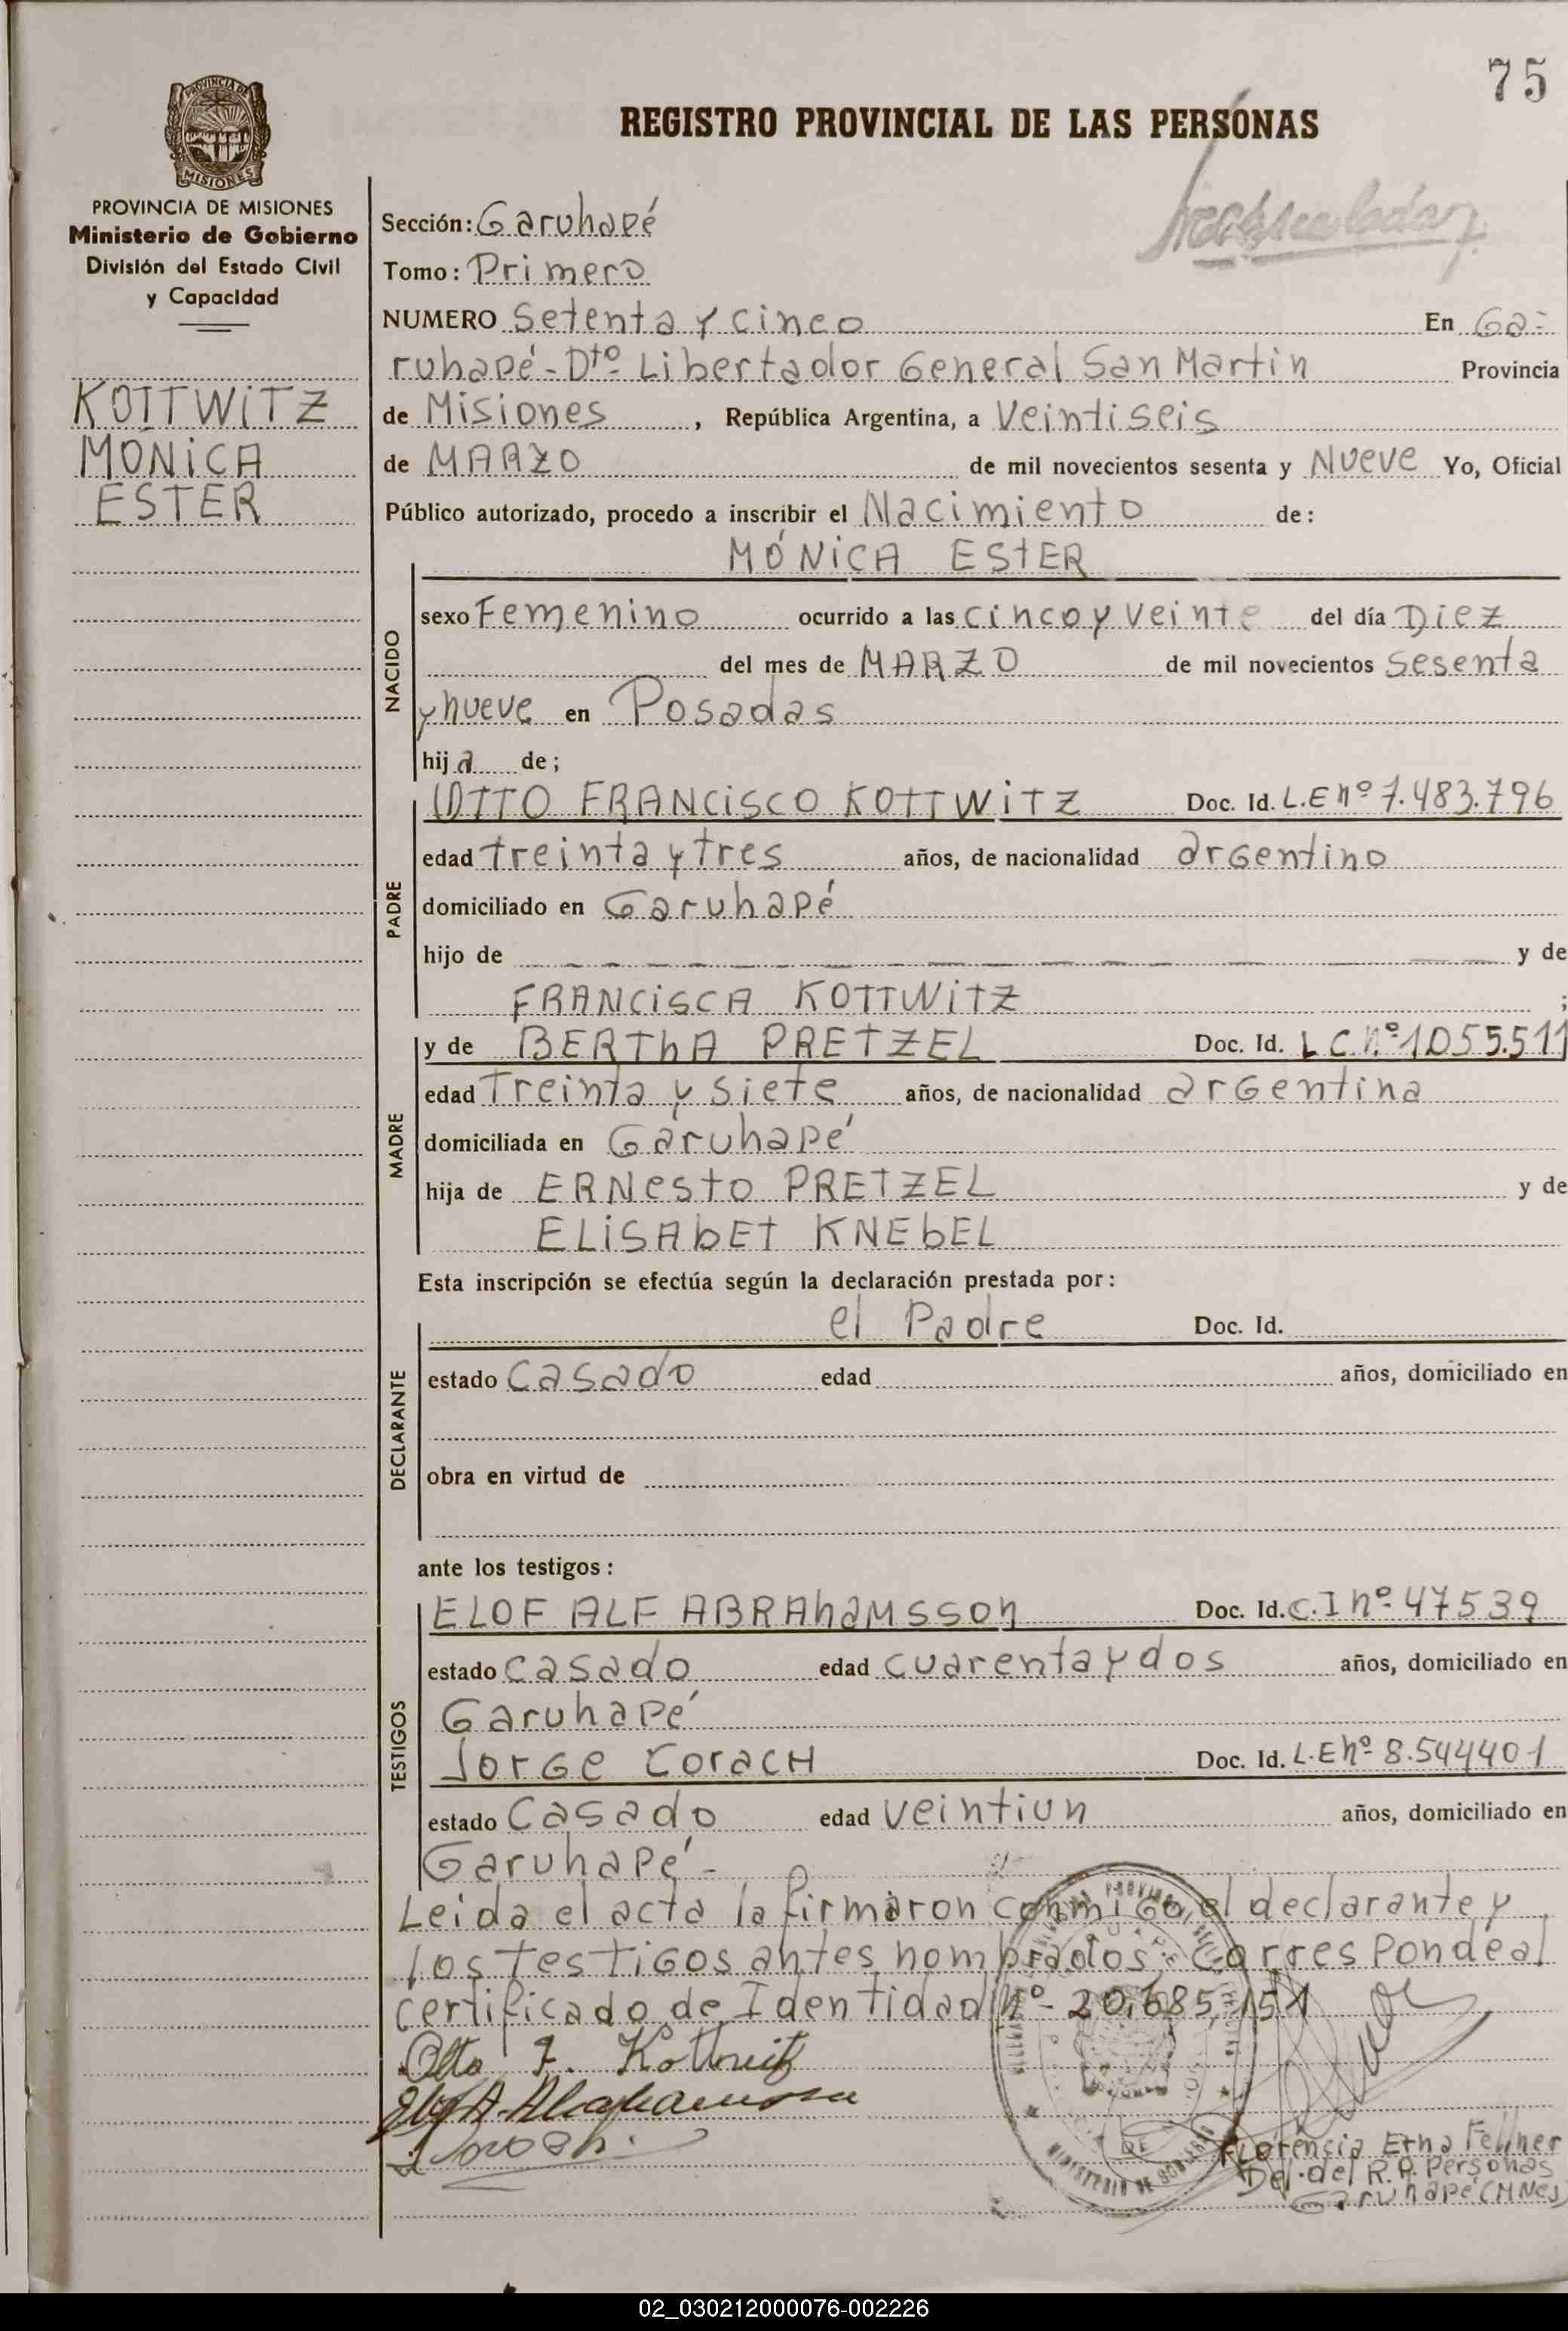 75
REGISTRO PROVINCIAL DE LAS PERSONAS
PROVINCIA DE
MISIONES
PROVINCIA DE MISIONES
Ministerio de Gobierno
División del Estado Civil
y Capacidad
KOTTWITZ
MONICA
ESTER
Sección: Garuhapé
Tomo: Primero
NUMERO Setenta y cinco En Ga-
ruhapé - Dto Libertador General San Martin Provincia
de Misiones, República Argentina, a Veintiseis
de MARZO de mil novecientos sesenta y Nueve Yo, Oficial
Público autorizado, procedo a inscribir el Nacimiento de:
MÓNICA ESTER
NACIDO
sexo Femenino ocurrido a las cinco y veinte del día Diez
del mes de MARZO de mil novecientos sesenta
y nueve en Posadas
hija de;
PADRE
OTTO FRANCISCO KOTTWITZ Doc. Id. L.E nº 7.483.796
edad treinta y tres años, de nacionalidad argentino
domiciliado en Garuhapé
hijo de — — — — — — — — — y de
FRANCISCA KOTTWITZ ;
MADRE
y de BERTHA PRETZEL Doc. Id. L C. nº 1.055.511
edad Treinta y siete años, de nacionalidad argentina
domiciliada en Garuhapé
hija de ERNESTO PRETZEL y de
ELISABET KNEBEL
Esta inscripción se efectúa según la declaración prestada por:
DECLARANTE
el Padre Doc. Id.
estado casado edad años, domiciliado en
obra en virtud de
ante los testigos:
TESTIGOS
ELOF ALF ABRAHAMSSON Doc. Id. C.I nº 47539
estado casado edad cuarenta y dos años, domiciliado en
Garuhapé
Jorge CoracH Doc. Id. L.E nº 8.544401
estado Casado edad veintiun años, domiciliado en
Garuhapé-
Leida el acta la firmaron conmigo, el declarante y
los testigos antes nombrados. Corresponde al
certificado de Identidad Nº 20,685,151
Otto F. Kottwitz
Florencia Erna Fellner
Del. del R.P. Personas
Garuhapé (MNes)
MINISTERIO DE GOBIERNO
02_030212000076-002226